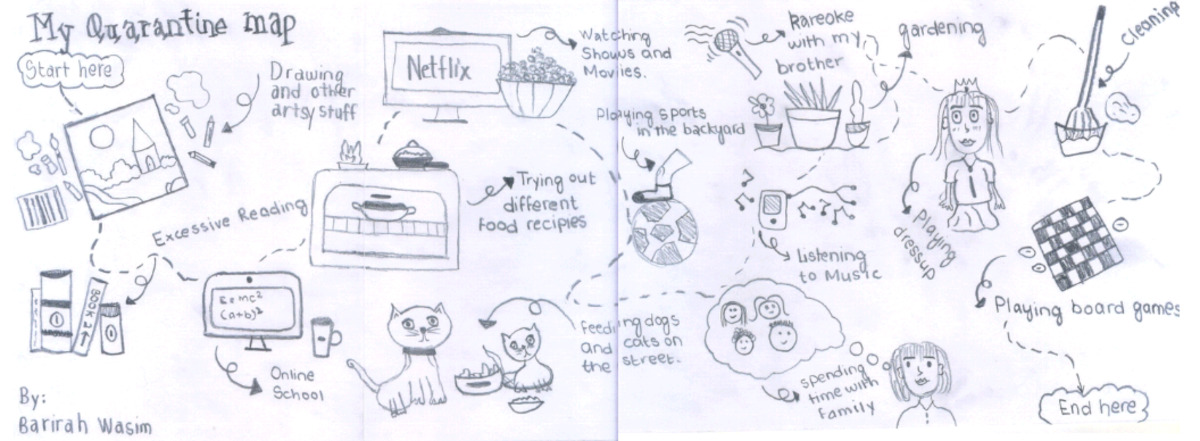 My Quarantine map
Start here
Drawing
and other
artsy stuff
Excessive Reading
BOOK 2
1
1
E=mc²
(a+b)²
Online
School
Trying out
different
food recipies
Netflix
Watching
Shows and
Movies.
Playing sports
in the backyard
Feeding dogs
and cats on
the street.
Kareoke
with my
brother
gardening
Listening
to Music
spending
time with
Family
Playing
dressup
Cleaning
Playing board games
End here
By:
Barirah Wasim